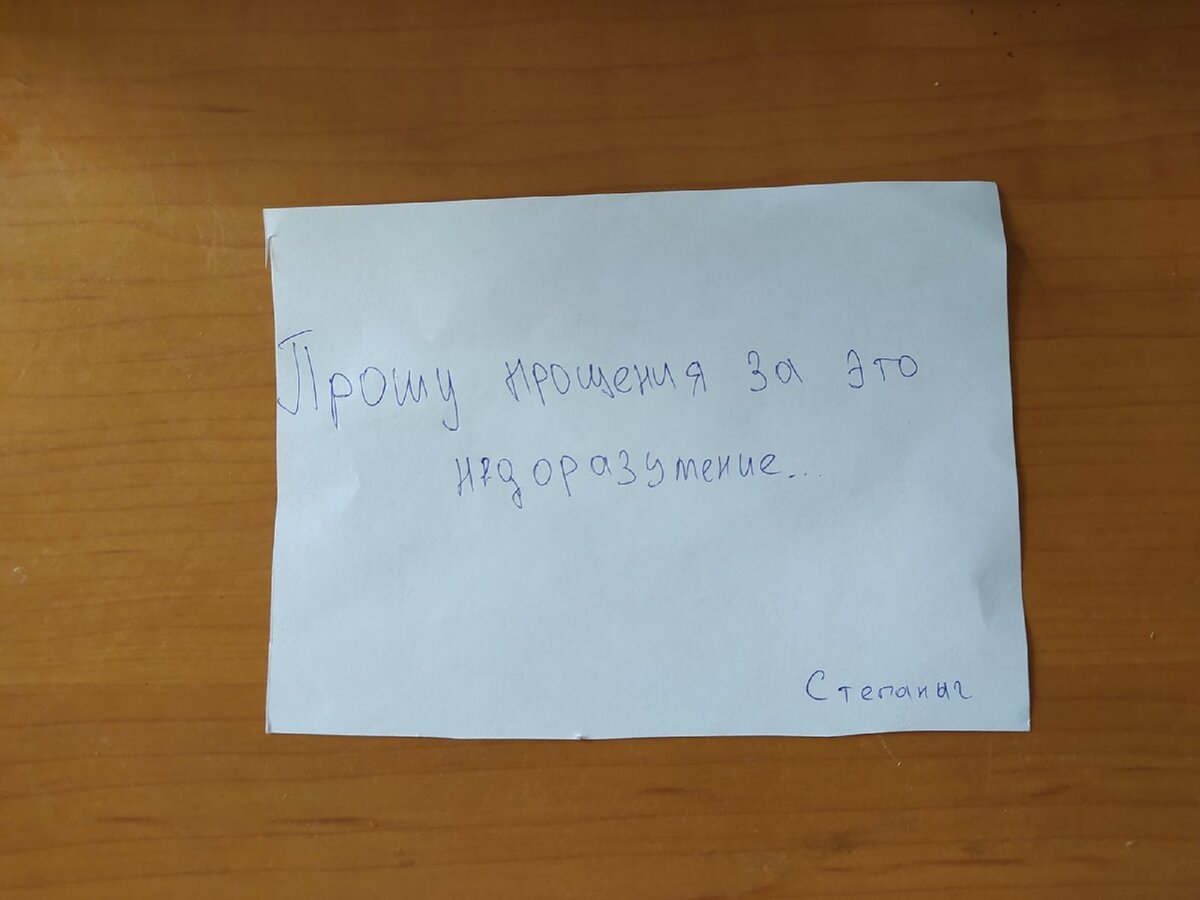 Прошу прощения за это
недоразумение...
Степаныч